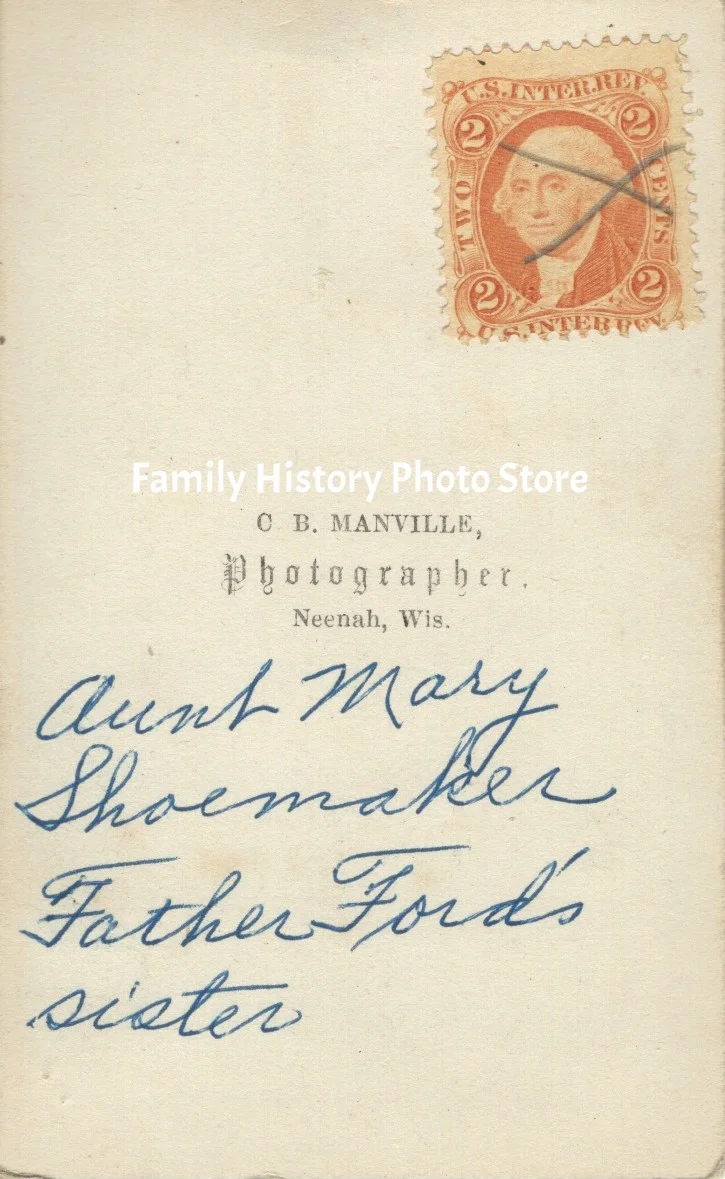 U.S. INTER. REV.
2 2
TWO CENTS
2 2
U.S. INTER. REV.
Family History Photo Store
C B. MANVILLE,
Photographer.
Neenah, Wis.
Aunt Mary
Shoemaker
Father Ford's
sister